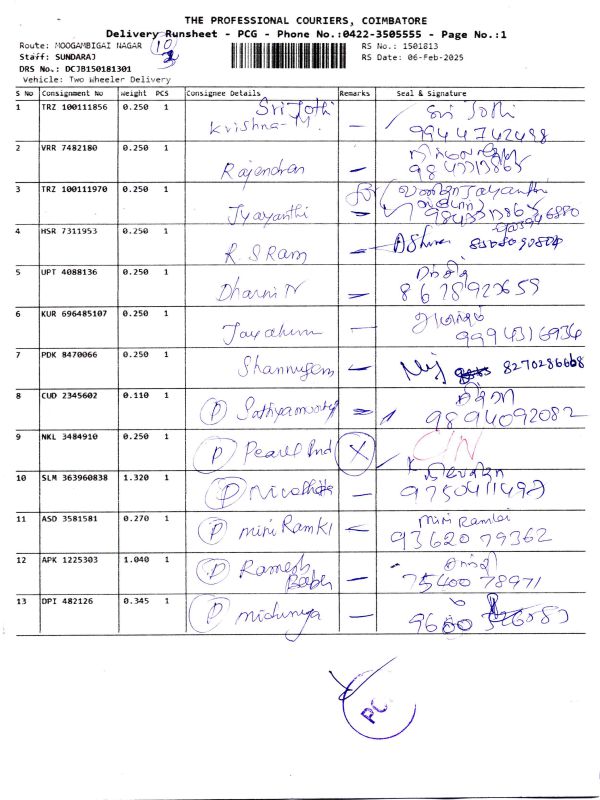 THE PROFESSIONAL COURIERS, COIMBATORE
Delivery Runsheet - PCG - Phone No.:0422-3505555 - Page No.:1
Route: MOOGAMBIGAI NAGAR
RS No.: 1501813
Staff: SUNDARAJ
RS Date: 06-Feb-2025
DRS No.: DCJB150181301
Vehicle: Two Wheeler Delivery
S No Consignment No Weight PCS Consignee Details Remarks Seal & Signature
1 TRZ 100111856 0.250 1 Sri Jothi Krishna-M. Sri Jothi
9944742498
2 VRR 7482180 0.250 1 Rajendran
3 TRZ 100111970 0.250 1 Jyayanthi Jayanthi
4 HSR 7311953 0.250 1 R.S Ram
5 UPT 4088136 0.250 1 Dharni N
8678923659
6 KUR 696485107 0.250 1
9994316934
7 PDK 8470066 0.250 1 Shanmugam 8270286668
8 CUD 2345602 0.110 1 P Sathyamoorthy
9894092082
9 NKL 3484910 0.250 1 P Pearl Ind X
10 SLM 363960838 1.320 1 P
11 ASD 3581581 0.270 1 P mini Ramki
9362079362
12 APK 1225303 1.040 1 P Ramesh Babu
7540078971
13 DPI 482126 0.345 1 P miduniya